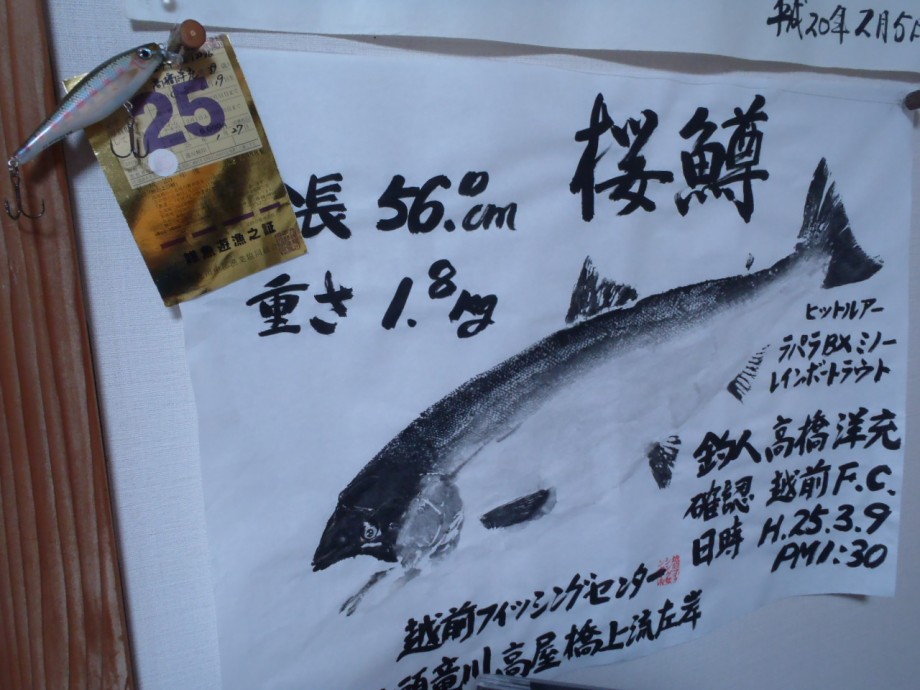 平成20年2月5日
25
雑魚遊漁之証
桜鱒
長 56.0cm
重さ 1.8kg
ヒットルアー
ラパラBXミノー
レインボートラウト
釣人 高橋洋充
確認 越前F.C.
日時 H.25.3.9
PM1:30
越前フィッシングセンター
頭竜川 高屋橋上流左岸